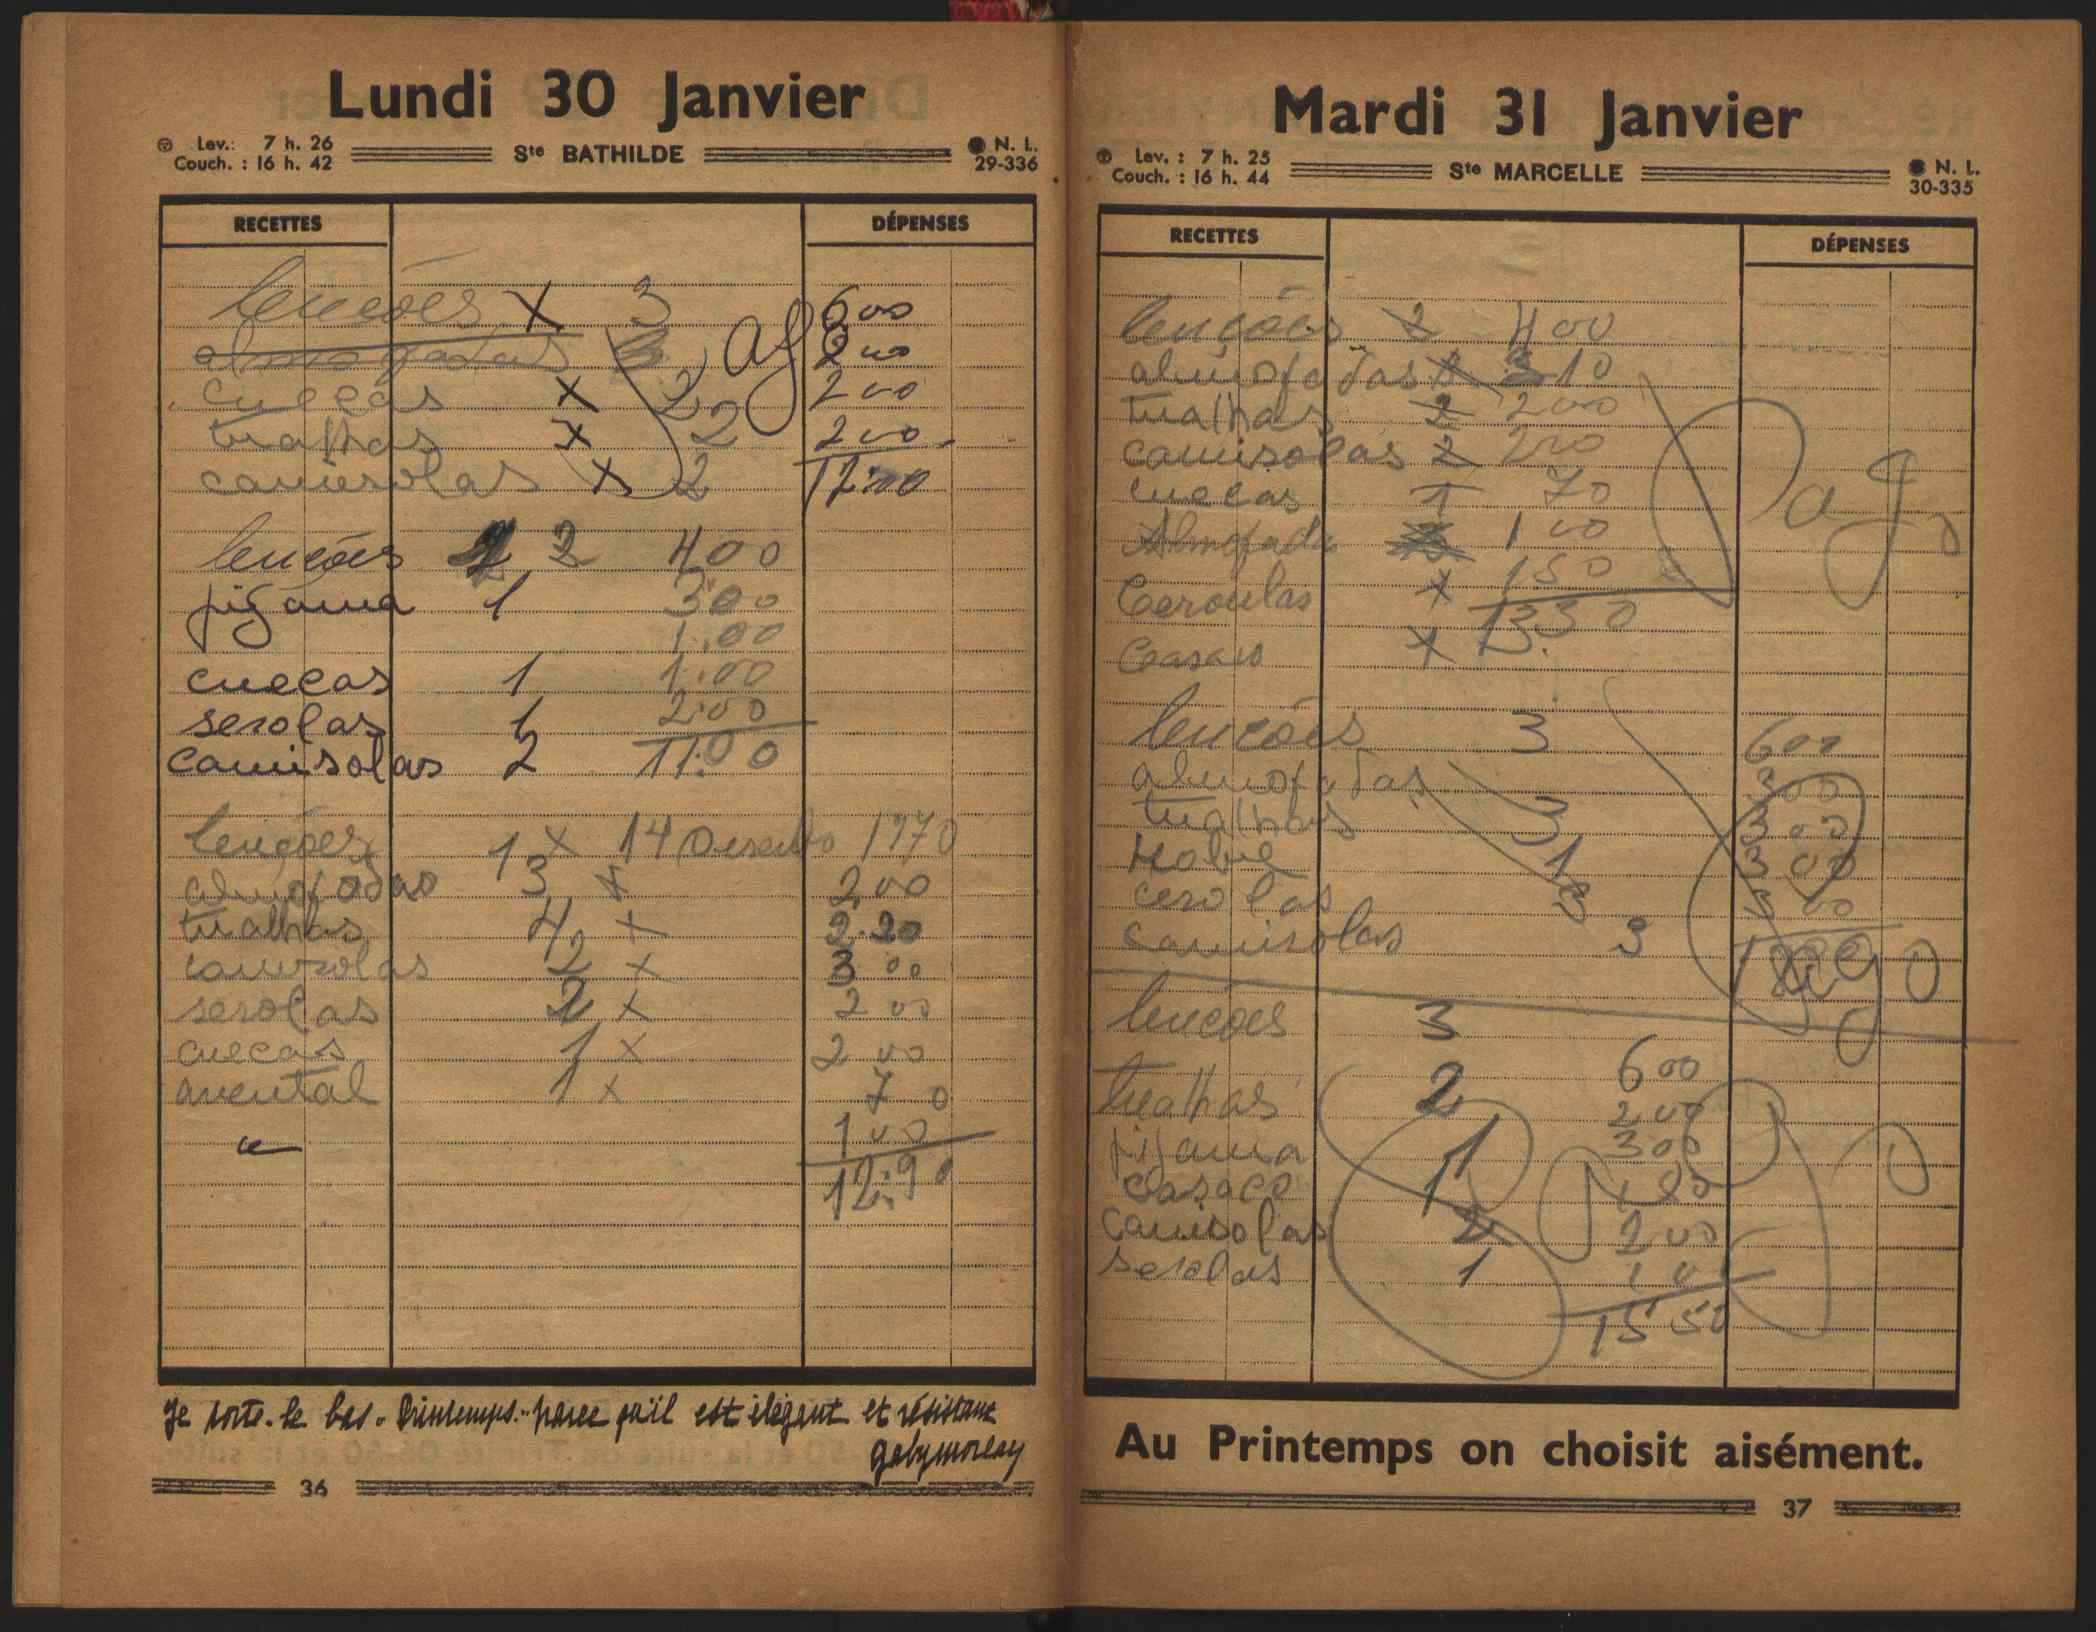 Lundi 30 Janvier
Lev.: 7 h. 26
Couch. : 16 h. 42
Ste BATHILDE
N. L.
29-336
RECETTES DÉPENSES
lencóes x 3 600
almogadas 3
cuecas x 2 200
tualhas x 2 200
camisolas x 2 1200
lencóes 2 400
pijama 1 300
1.00
cuecas 1 1.00
serolas 1 2.00
camisolas 2 11.00
lencóes 1 x 14 1970
almofadas 3 x 2,00
tualhas 4 x 2.20
camisolas 2 x 3 00
serolas 2 x 2 00
cuecas 1 x 2 00
avental 1 x 70
100
12.90
Je porte le bas "Printemps" parce qu'il est élégant et résistant
Gaby Morlay
36
Mardi 31 Janvier
Lev. : 7 h. 25
Couch. : 16 h. 44
Ste MARCELLE
N. L.
30-335
RECETTES DÉPENSES
lencóes 2 400
almofadas 10
tualhas 2 200
camisolas 2 200
cuecas 1 70
Almofada 100
Ceroulas x 150
1330
Casaco x
lencóes 3 600
almofadas 300
tualhas 3 300
1 300
cerolas 3 300
camisolas 3
lencóes 3
600
tualhas 2 200
pijama 1 300
casaco 1
camisolas 2 200
serolas 1
1550
Au Printemps on choisit aisément.
37